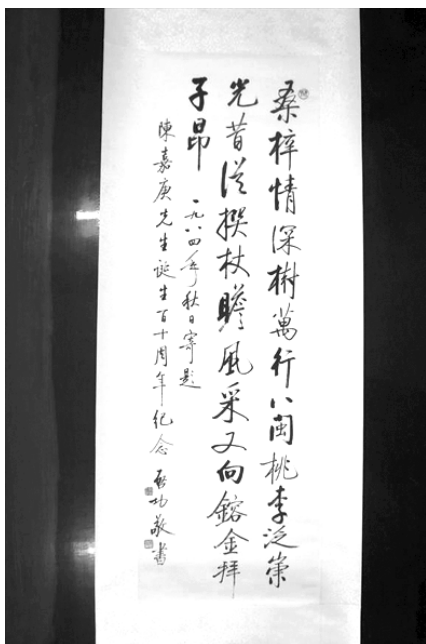 桑梓情深樹萬行八閩桃李泛榮
光昔從撰杖瞻風采又向鎔金拜
子昂 一九八四年秋日寄題
陳嘉庚先生誕生百十周年紀念 啟功敬書